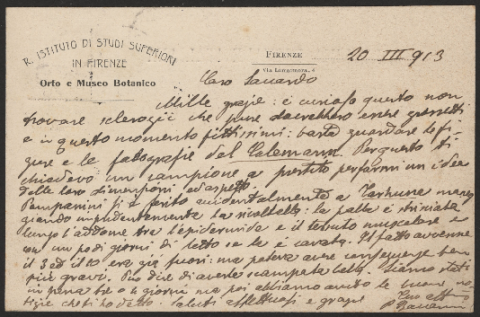 R. ISTITUTO DI STUDI SUPERIORI
IN FIRENZE
Orto e Museo Botanico
FIRENZE
Via Lamarmora, 4
20 III 913
Caro Saccardo
Mille grazie: è curioso questo non
trovare sclerozii che pure dovrebbero essere grossetti
e in questo momento fittissimi: basta guardare le fi-
gure e le fotografie del Valemann. Per questo ti
chiedevo un campione a prestito per farmi un'idea
delle loro dimensioni ed aspetto.
Pampanini si è ferito accidentalmente a Tarhuna maneg-
giando imprudentemente la rivoltella: la palla è strisciata
lungo l'addome tra l'epidermide e il tessuto muscolare e
con un po di giorni di letto se la è cavata. Il fatto avvenne
il 3 ed il 10 era già fuori: ma poteva avere conseguenze ben
più gravi. Può dire di averla scampata bella. Siamo stati
in pena tre o 4 giorni ma poi abbiamo avuto le buone no-
tizie che ti ho detto. Saluti affettuosi e grazie
tuo aff
P. Baccarini